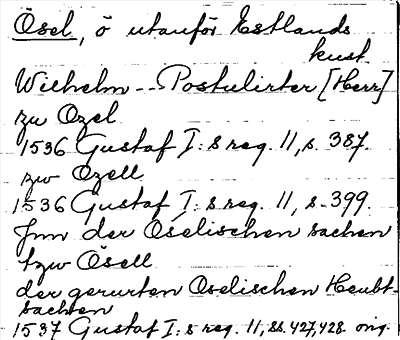 Ösel, ö utanför Estlands
kust.
Wilhelm -- Postulirter [Herr]
zu Ozel
1536 Gustaf I:s reg. 11, s. 387.
zw Ozell
1536 Gustaf I:s reg. 11, s. 399.
Jnn der Oselischen sachen
tzw Ösell
der gerurten Oselischen Heubt-
sachten
1537 Gustaf I:s reg. 11, ss. 427, 428. orig.